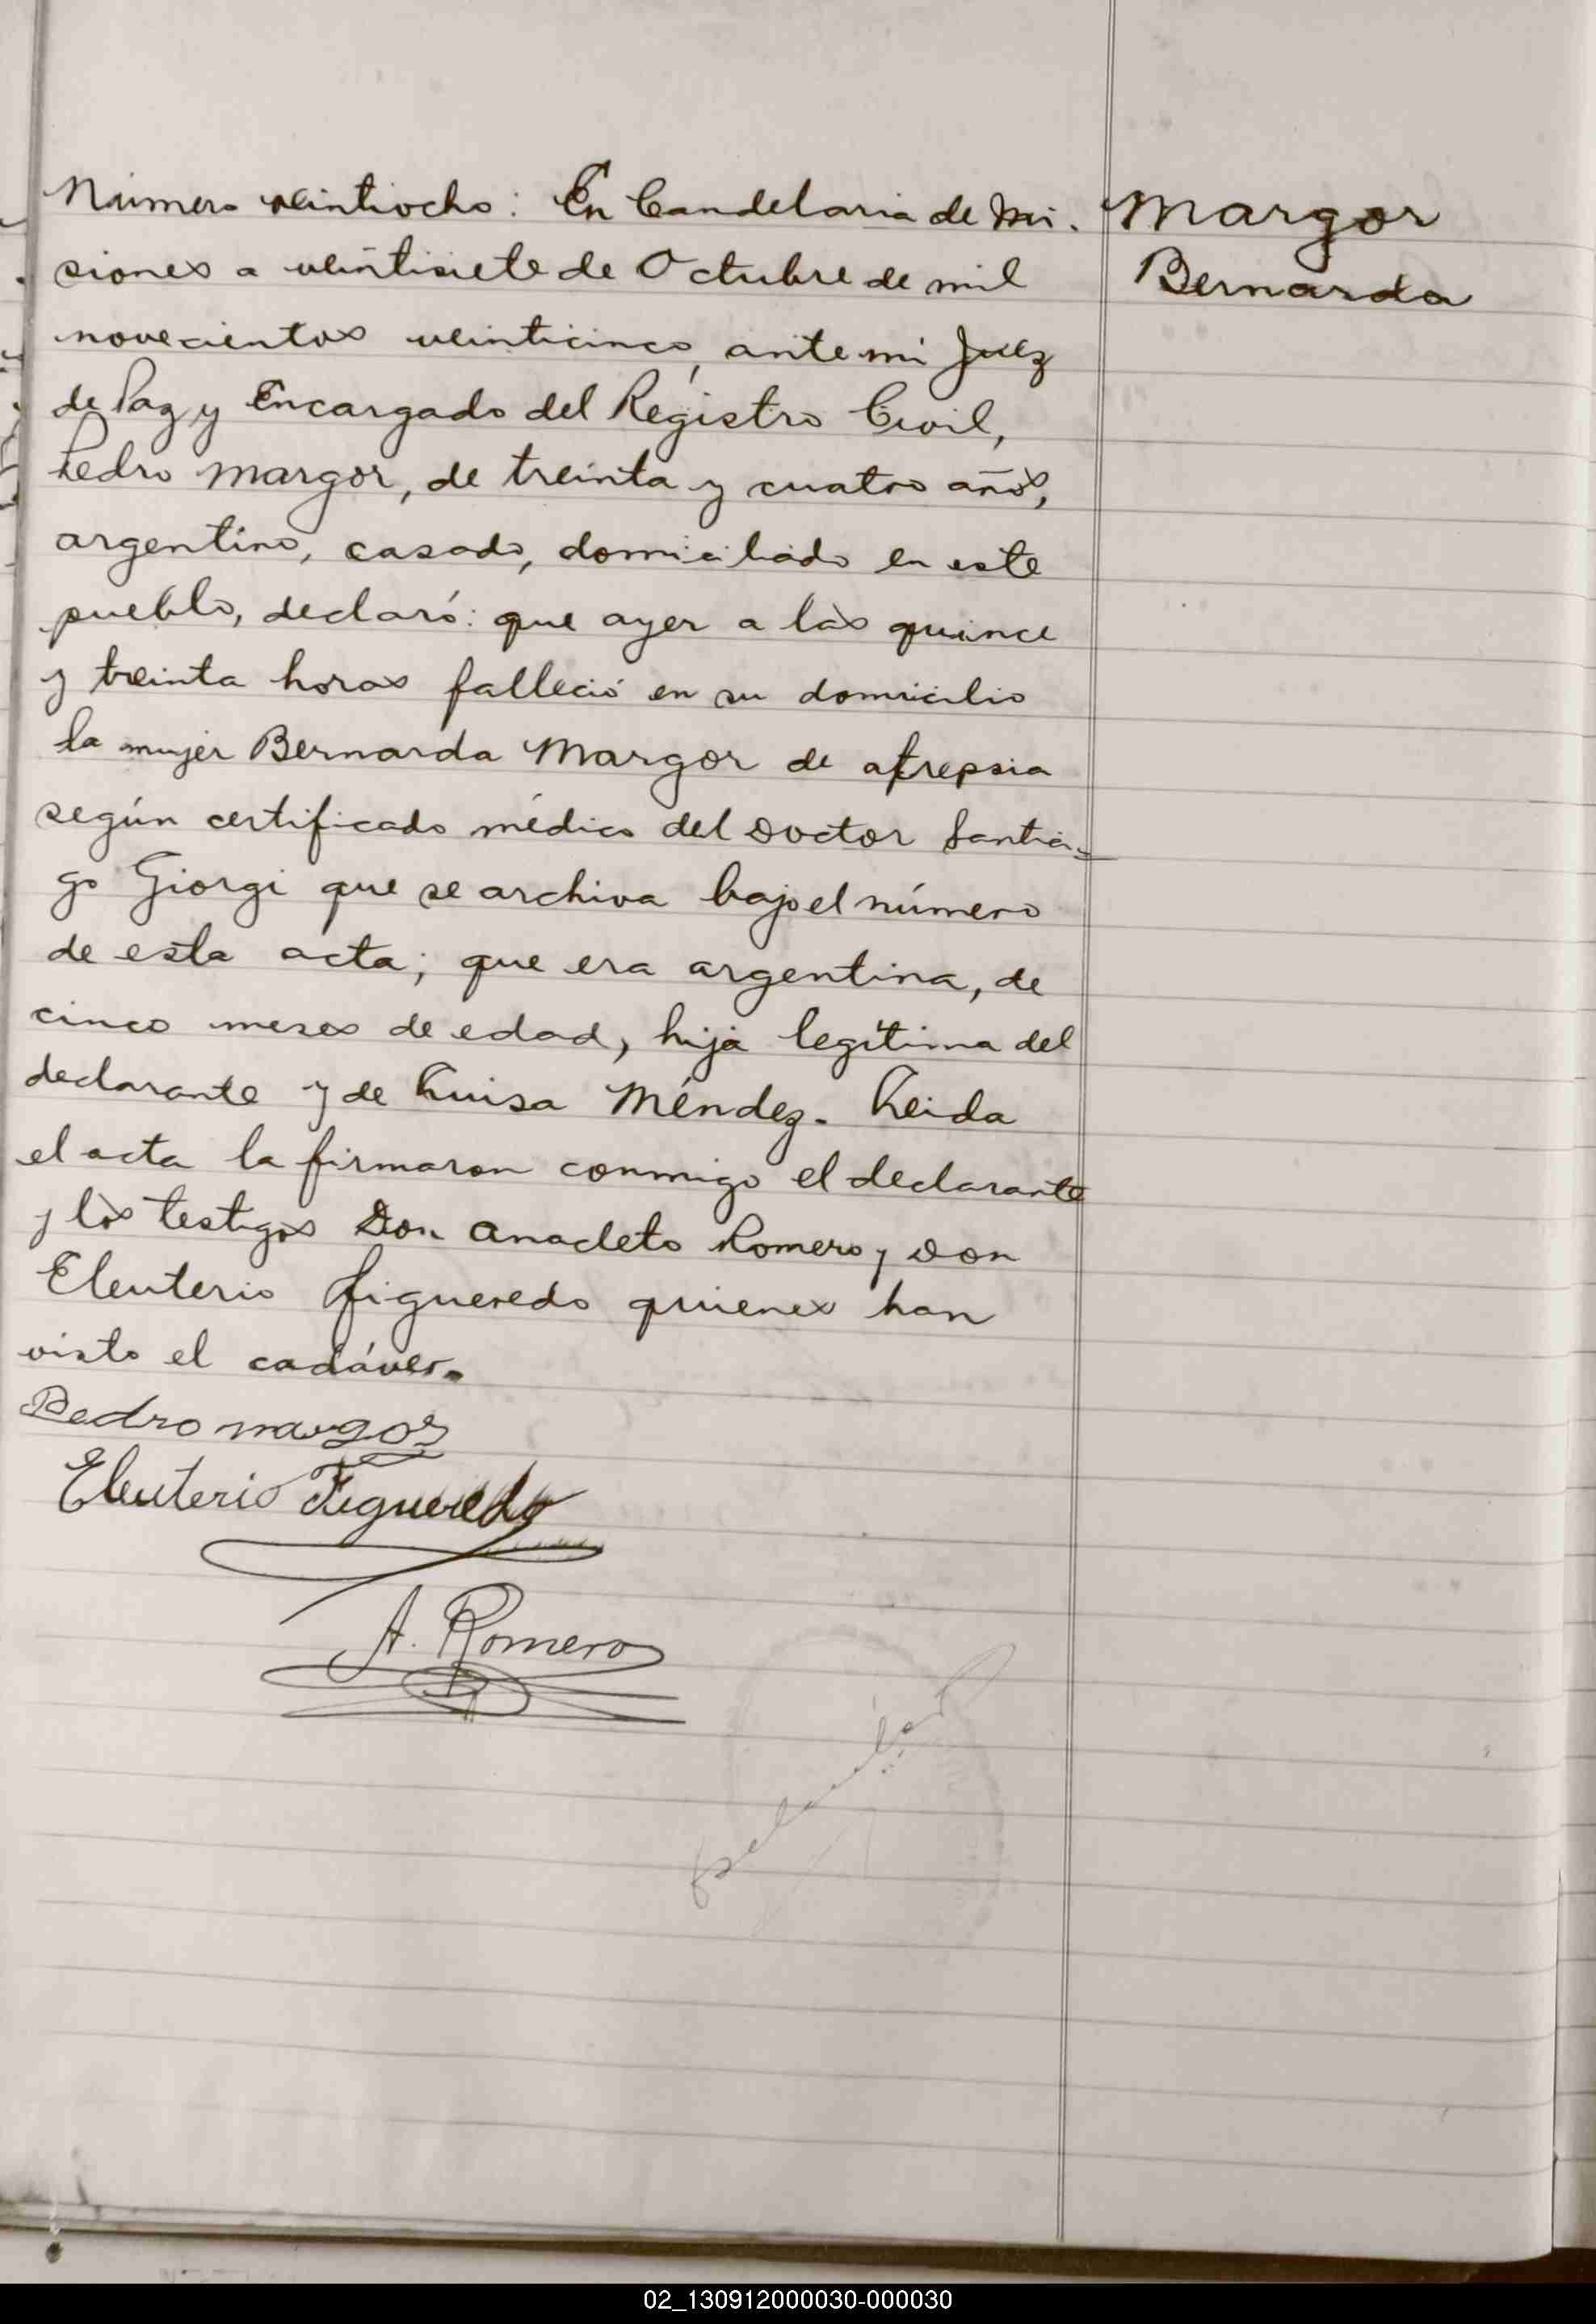 Número veintiocho: En Candelaria de Mi-
siones a veintisiete de Octubre de mil
novecientos veinticinco, ante mi Juez
de Paz y Encargado del Registro Civil,
Pedro Margor, de treinta y cuatro años,
argentino, casado, domiciliado en este
pueblo, declaró: que ayer a las quince
y treinta horas falleció en su domicilio
la mujer Bernarda Margor de atrepsia
según certificado médico del Doctor Santia-
go Giorgi que se archiva bajo el número
de esta acta; que era argentina, de
cinco meses de edad, hija legítima del
declarante y de Luisa Méndez. Leida
el acta la firmaron conmigo el declarante
y los testigos Don Anacleto Romero y Don
Eleuterio Figueredo quienes han
visto el cadáver.
Pedro margor
Eleuterio Figueredo
A. Romero
Margor
Bernarda
02_130912000030-000030